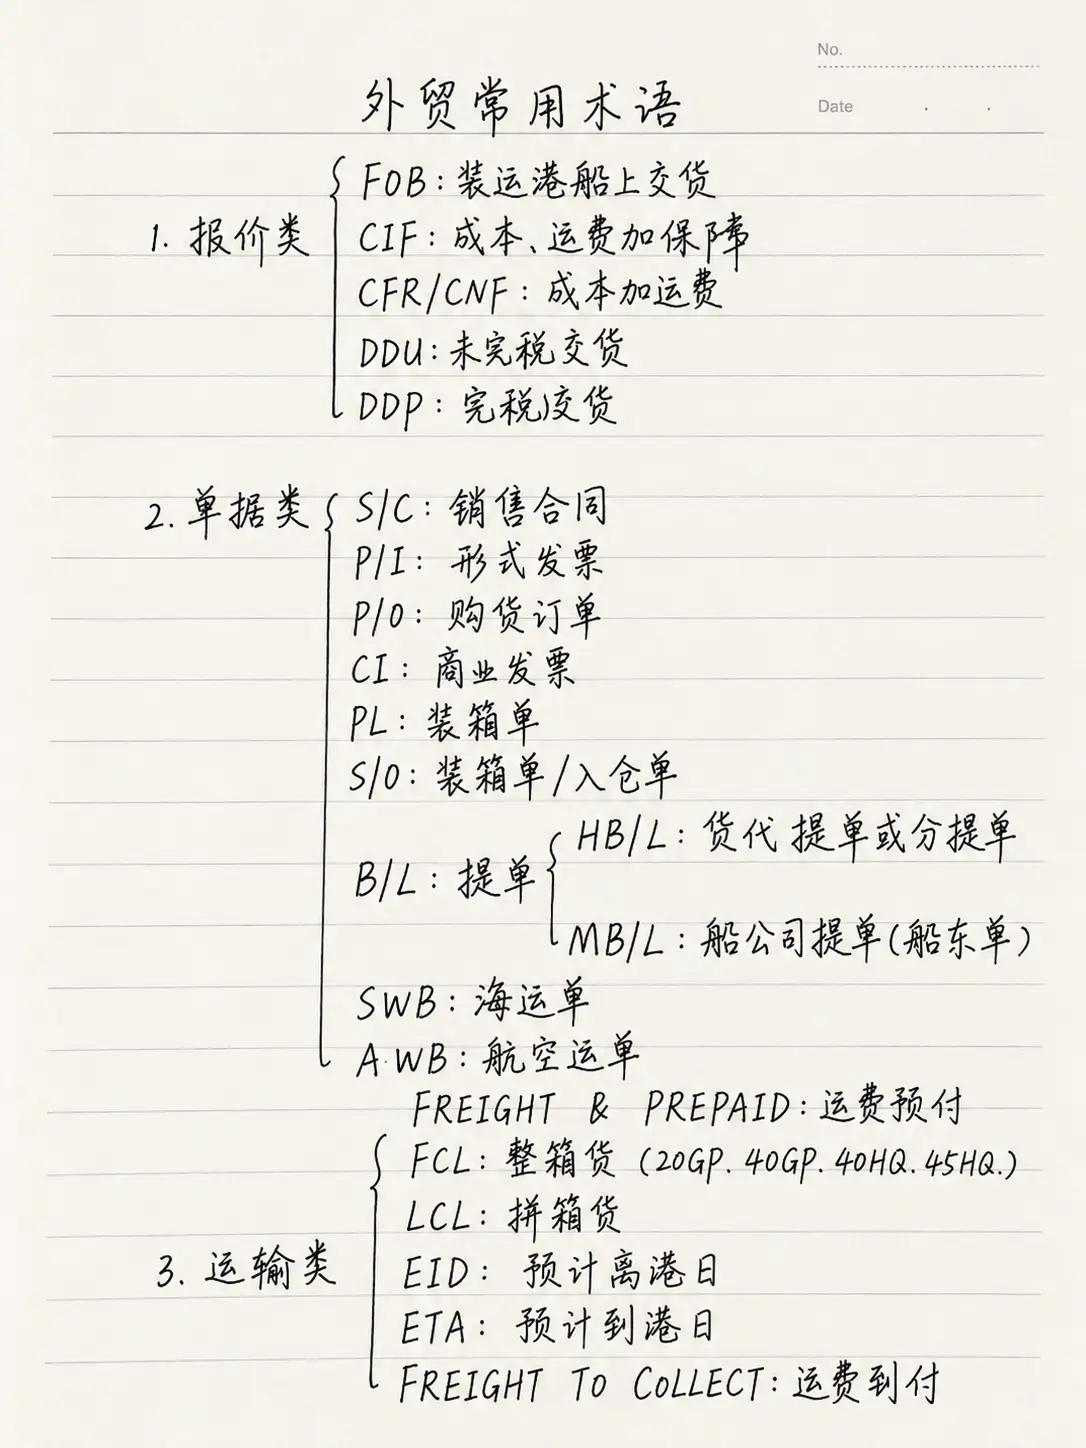 No.
Date
外贸常用术语
1. 报价类
FOB：装运港船上交货
CIF：成本、运费加保障
CFR/CNF：成本加运费
DDU：未完税交货
DDP：完税交货
2. 单据类
S/C：销售合同
P/I：形式发票
P/O：购货订单
CI：商业发票
PL：装箱单
S/O：装箱单/入仓单
B/L：提单
HB/L：货代提单或分提单
MB/L：船公司提单(船东单)
SWB：海运单
A·WB：航空运单
FREIGHT & PREPAID：运费预付
3. 运输类
FCL：整箱货 (20GP. 40GP. 40HQ. 45HQ.)
LCL：拼箱货
EID：预计离港日
ETA：预计到港日
FREIGHT TO COLLECT：运费到付